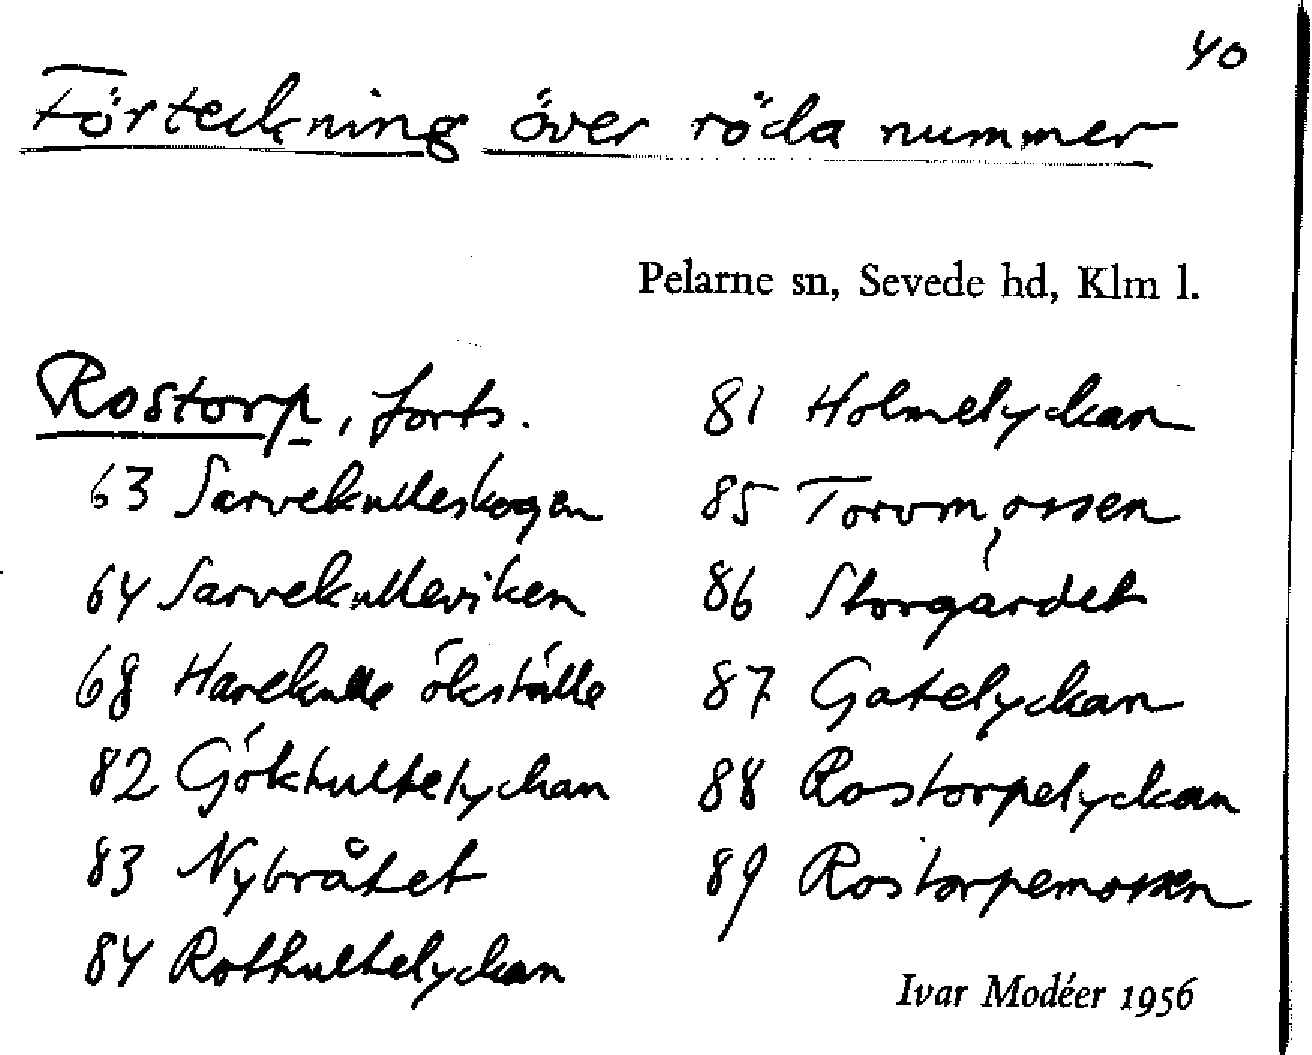 40
Förteckning över röda nummer
Pelarne sn, Sevede hd, Klm l.
Rostorp, forts.
63 Sarvekulleskogen
64 Sarvekulleviken
68 Harekulle ökställe
82 Gökhultelyckan
83 Nybråtet
84 Rothultelyckan
81 Holmelyckan
85 Torvmossen
86 Storgärdet
87 Gatelyckan
88 Rostorpelyckan
89 Rostorpemossen
Ivar Modéer 1956